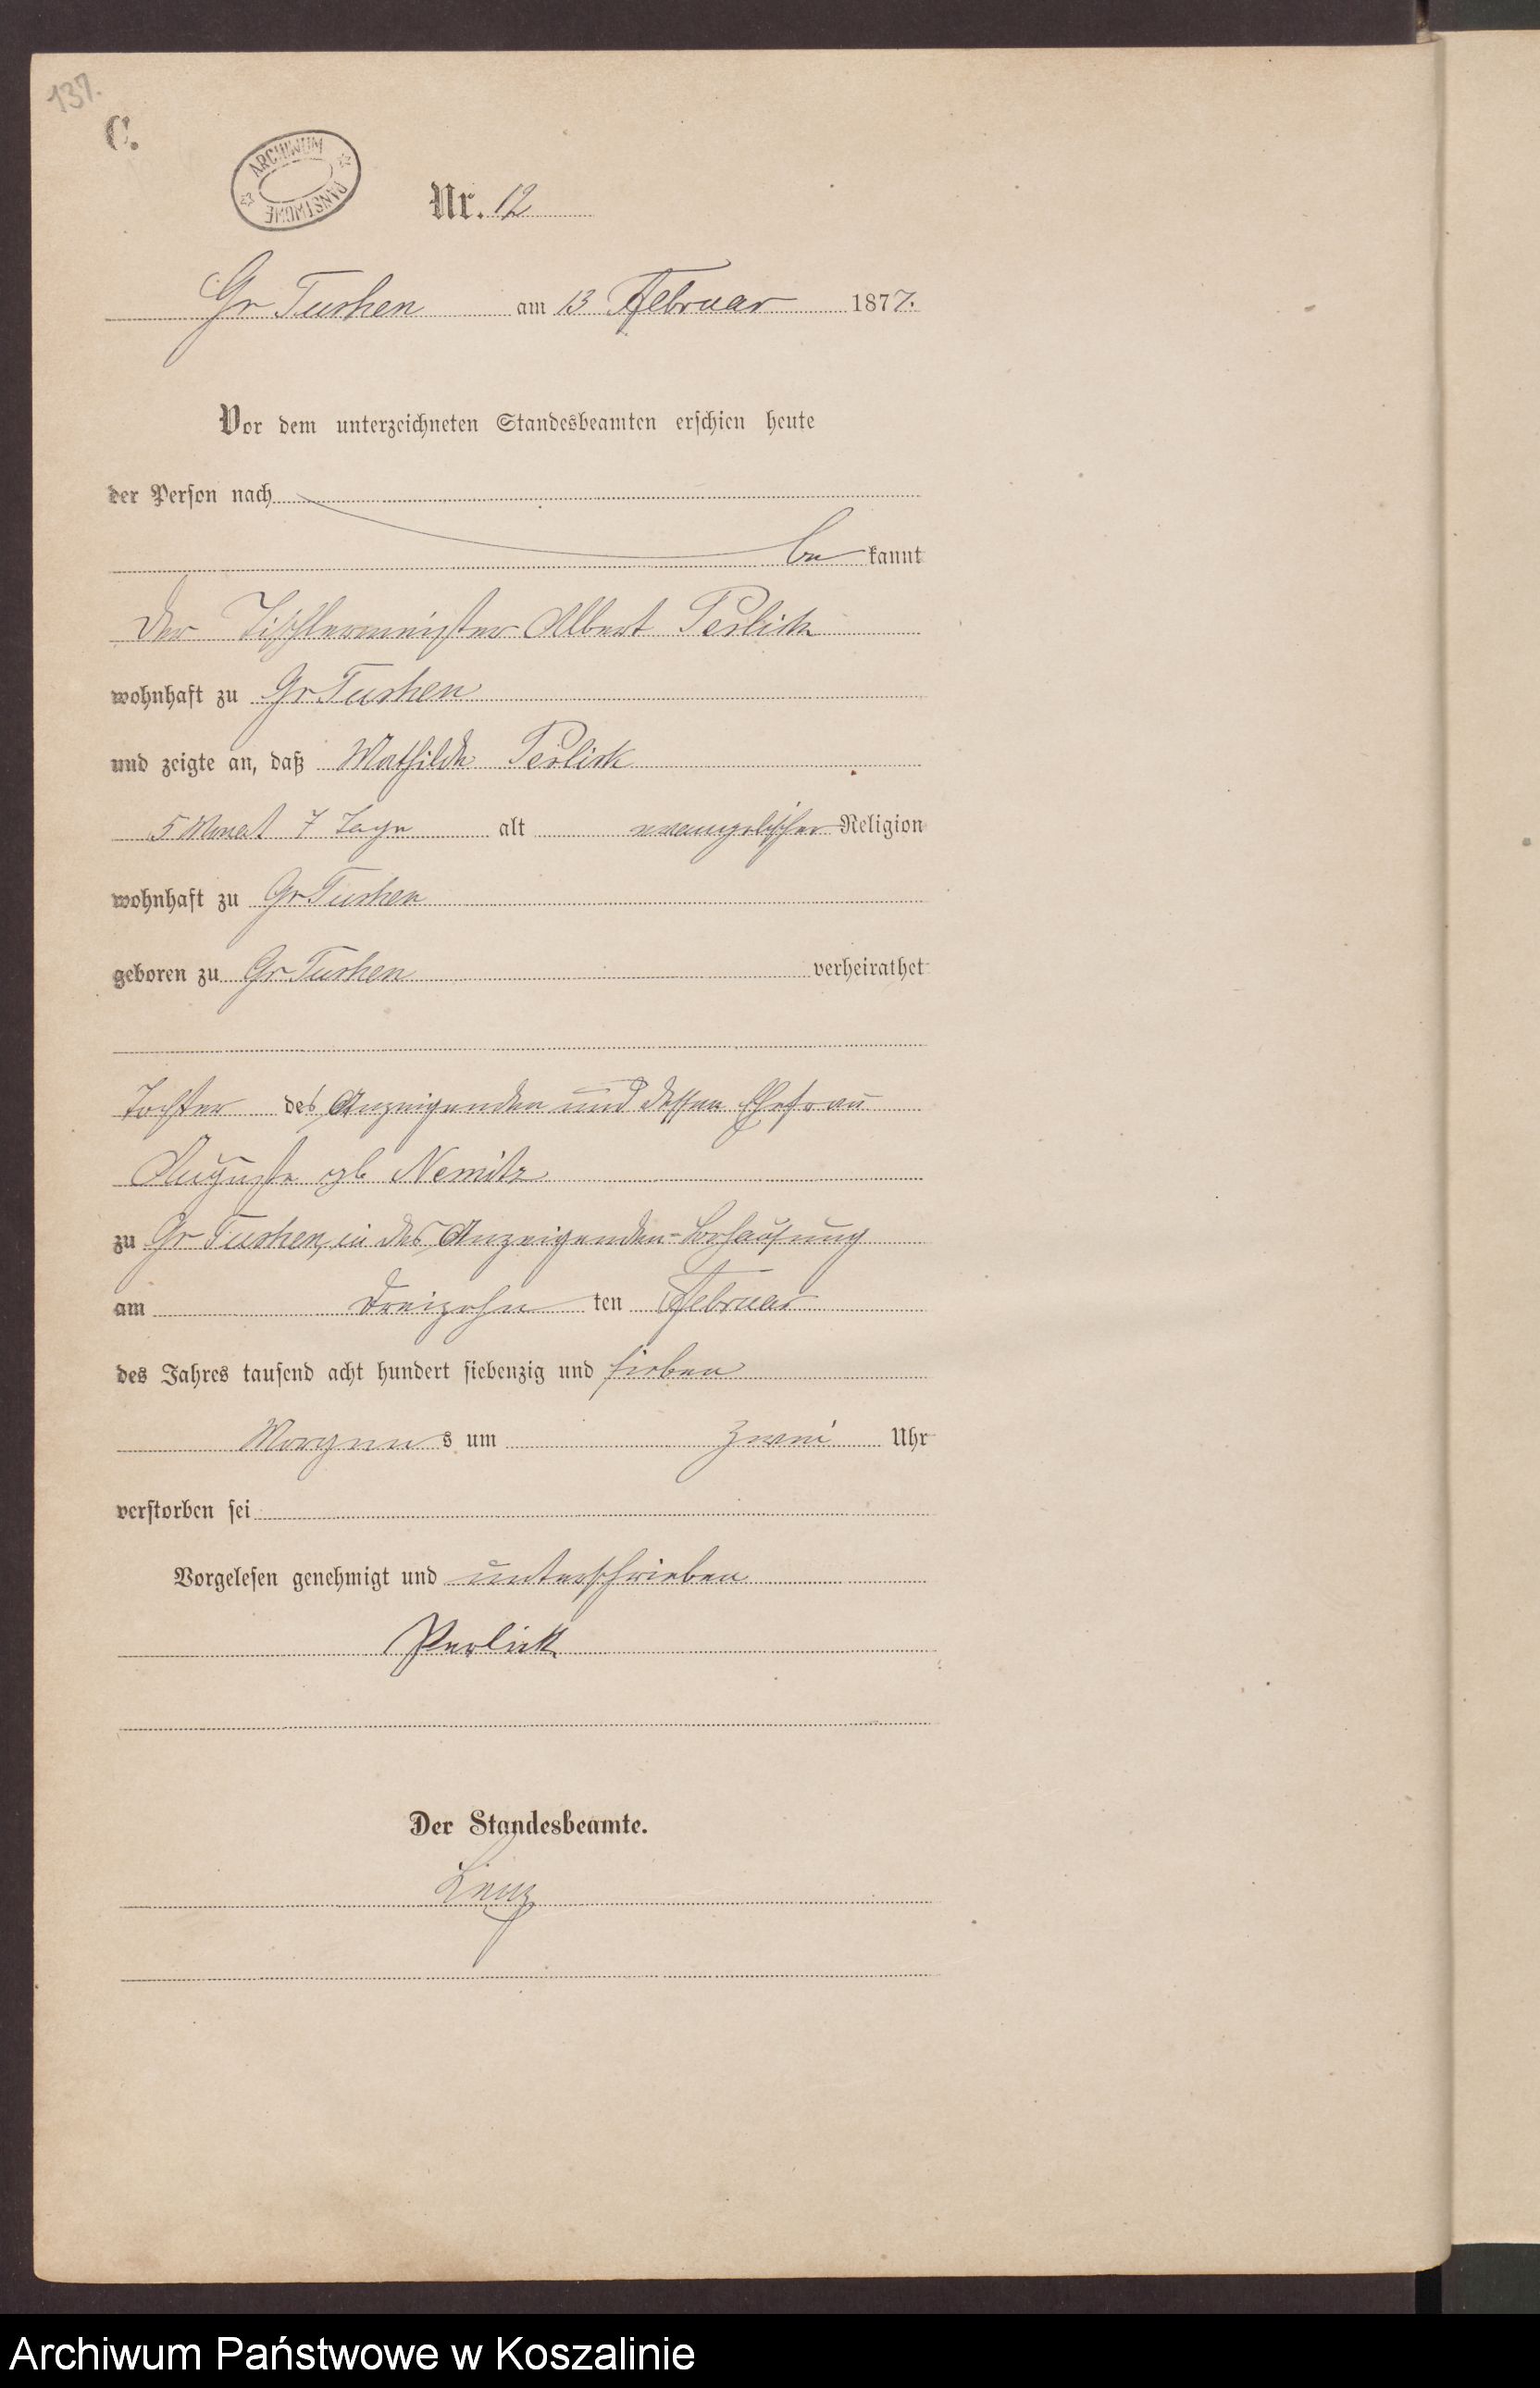 137.
C.
ARCHIWUM PAŃSTWOWE
Nr. 12
Gr Tuchen am 13 Februar 1877.
Vor dem unterzeichneten Standesbeamten erschien heute
der Person nach
be kannt
der Tischlermeister Albert Perlick
wohnhaft zu Gr Tuchen
und zeigte an, daß Mathilde Perlick
5 Monat 7 Tage alt evangelischer Religion
wohnhaft zu Gr Tuchen
geboren zu Gr Tuchen verheirathet
Tochter des Anzeigenden und dessen Ehefrau
Auguste geb Nemitz
zu Gr Tuchen, in des Anzeigenden Behausung
am Dreizehn ten Februar
des Jahres tausend acht hundert siebenzig und sieben
Morgen s um zwei Uhr
verstorben sei
Vorgelesen genehmigt und unterschrieben
Perlick
Der Standesbeamte.
Archiwum Państwowe w Koszalinie